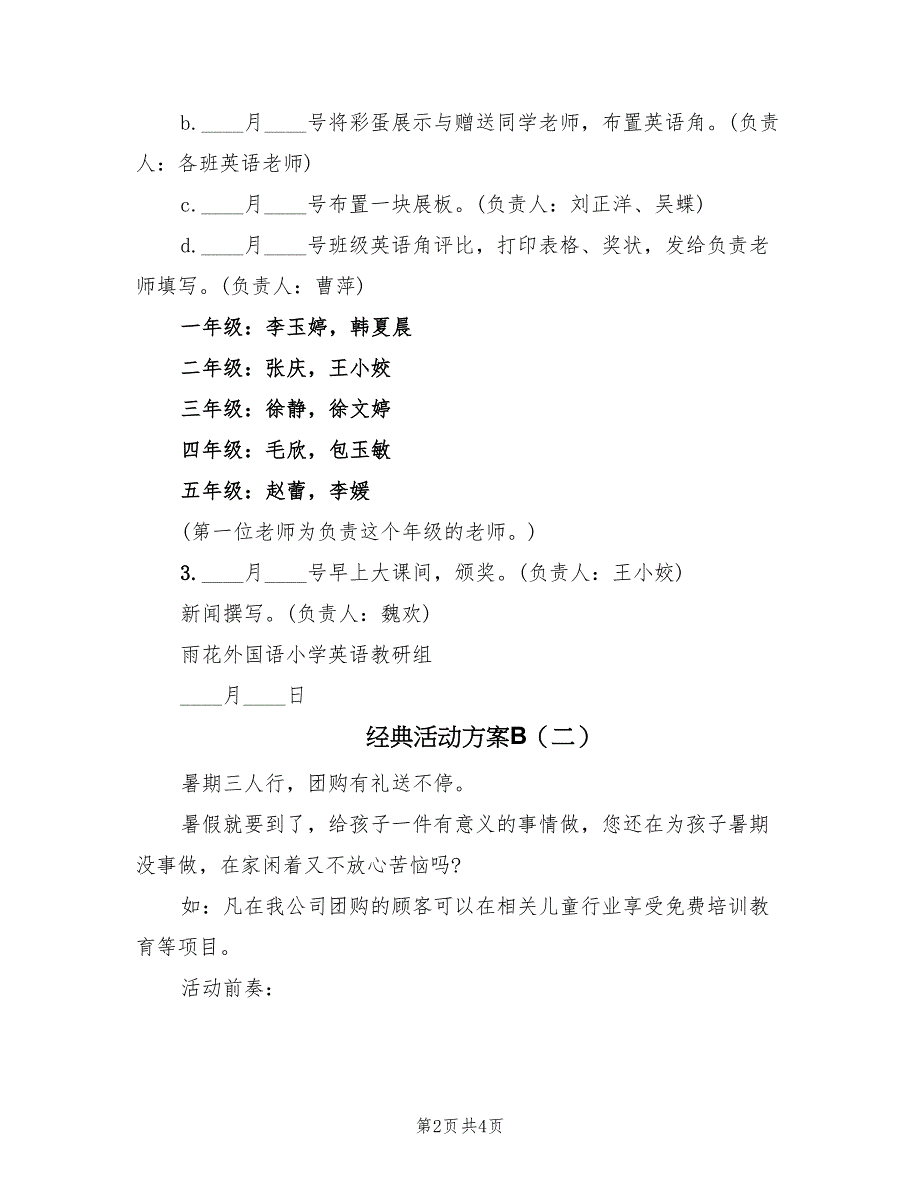 b.____月____号将彩蛋展示与赠送同学老师，布置英语角。(负责
人：各班英语老师)
c.____月____号布置一块展板。(负责人：刘正洋、吴蝶)
d.____月____号班级英语角评比，打印表格、奖状，发给负责老
师填写。(负责人：曹萍)
一年级：李玉婷，韩夏晨
二年级：张庆，王小姣
三年级：徐静，徐文婷
四年级：毛欣，包玉敏
五年级：赵蕾，李媛
(第一位老师为负责这个年级的老师。)
3.____月____号早上大课间，颁奖。(负责人：王小姣)
新闻撰写。(负责人：魏欢)
雨花外国语小学英语教研组
____月____日
经典活动方案B（二）
暑期三人行，团购有礼送不停。
暑假就要到了，给孩子一件有意义的事情做，您还在为孩子暑期
没事做，在家闲着又不放心苦恼吗?
如：凡在我公司团购的顾客可以在相关儿童行业享受免费培训教
育等项目。
活动前奏：
第2页共4页